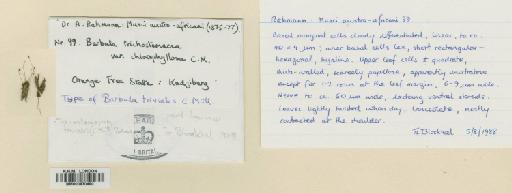 Dr A. Rehmann. Musci austro-africani (1875-77).
Nr 99. Barbula trichostomacea
var. chlorophyllosa C.M.
Orange Free State: Kadziberg
Type of Barbula C. Müll.
Rehmann. Musci austro-africani 99
Basal marginal cells clearly differentiated, linear, to
μm; inner basal cells lax, short rectangular-
hexagonal, hyaline. Upper leaf cells ± quadrate,
thick-walled, scarcely papillose, apparently unistratose
except for 1-2 rows at the leaf margin, 6-9 μm wide.
Nerve to ca. 50 μm wide, lacking ventral stereids.
Leaves tightly twisted when dry, lanceolate, mostly
contracted at the shoulder.
5/8/1988